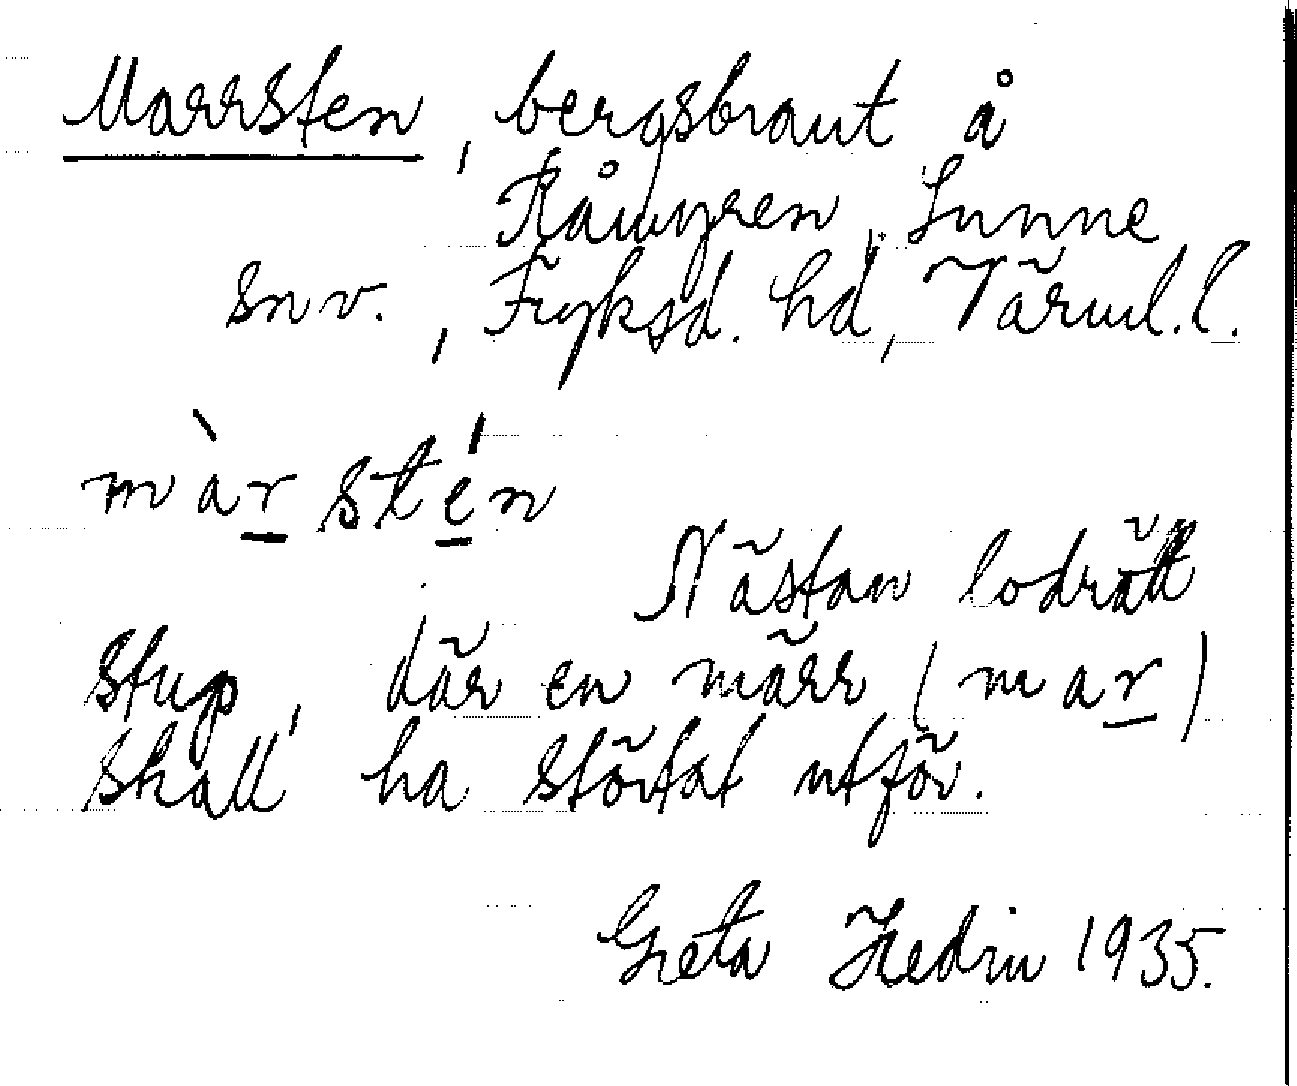 Marrsten, bergsbrant å
Råmyren, Sunne
snv., Fryksd. hd, Värml. l.
màr stén
Nästan lodrätt
stup, där en märr (mar)
skall ha störtat utför.
Greta Hedin 1935.